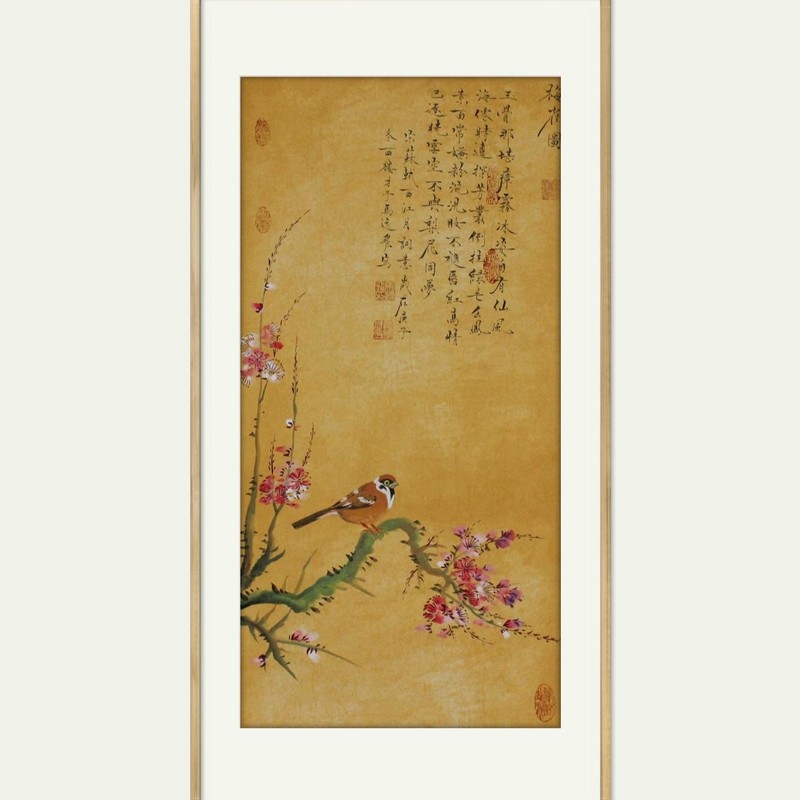 梅雀圖
玉骨那愁瘴霧冰姿自有仙風
海僊時遣探芳叢倒挂綠毛么鳳
素面常嫌粉涴洗妝不褪唇紅高情
已逐曉雲空不與梨花同夢
宋蘇軾西江月詞意歲在庚子